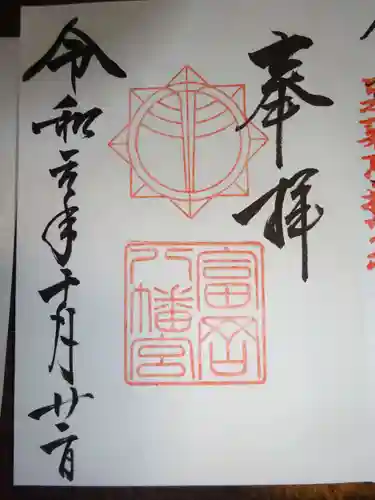 奉拝
富岡
八幡宮
令和元年十月廿二日